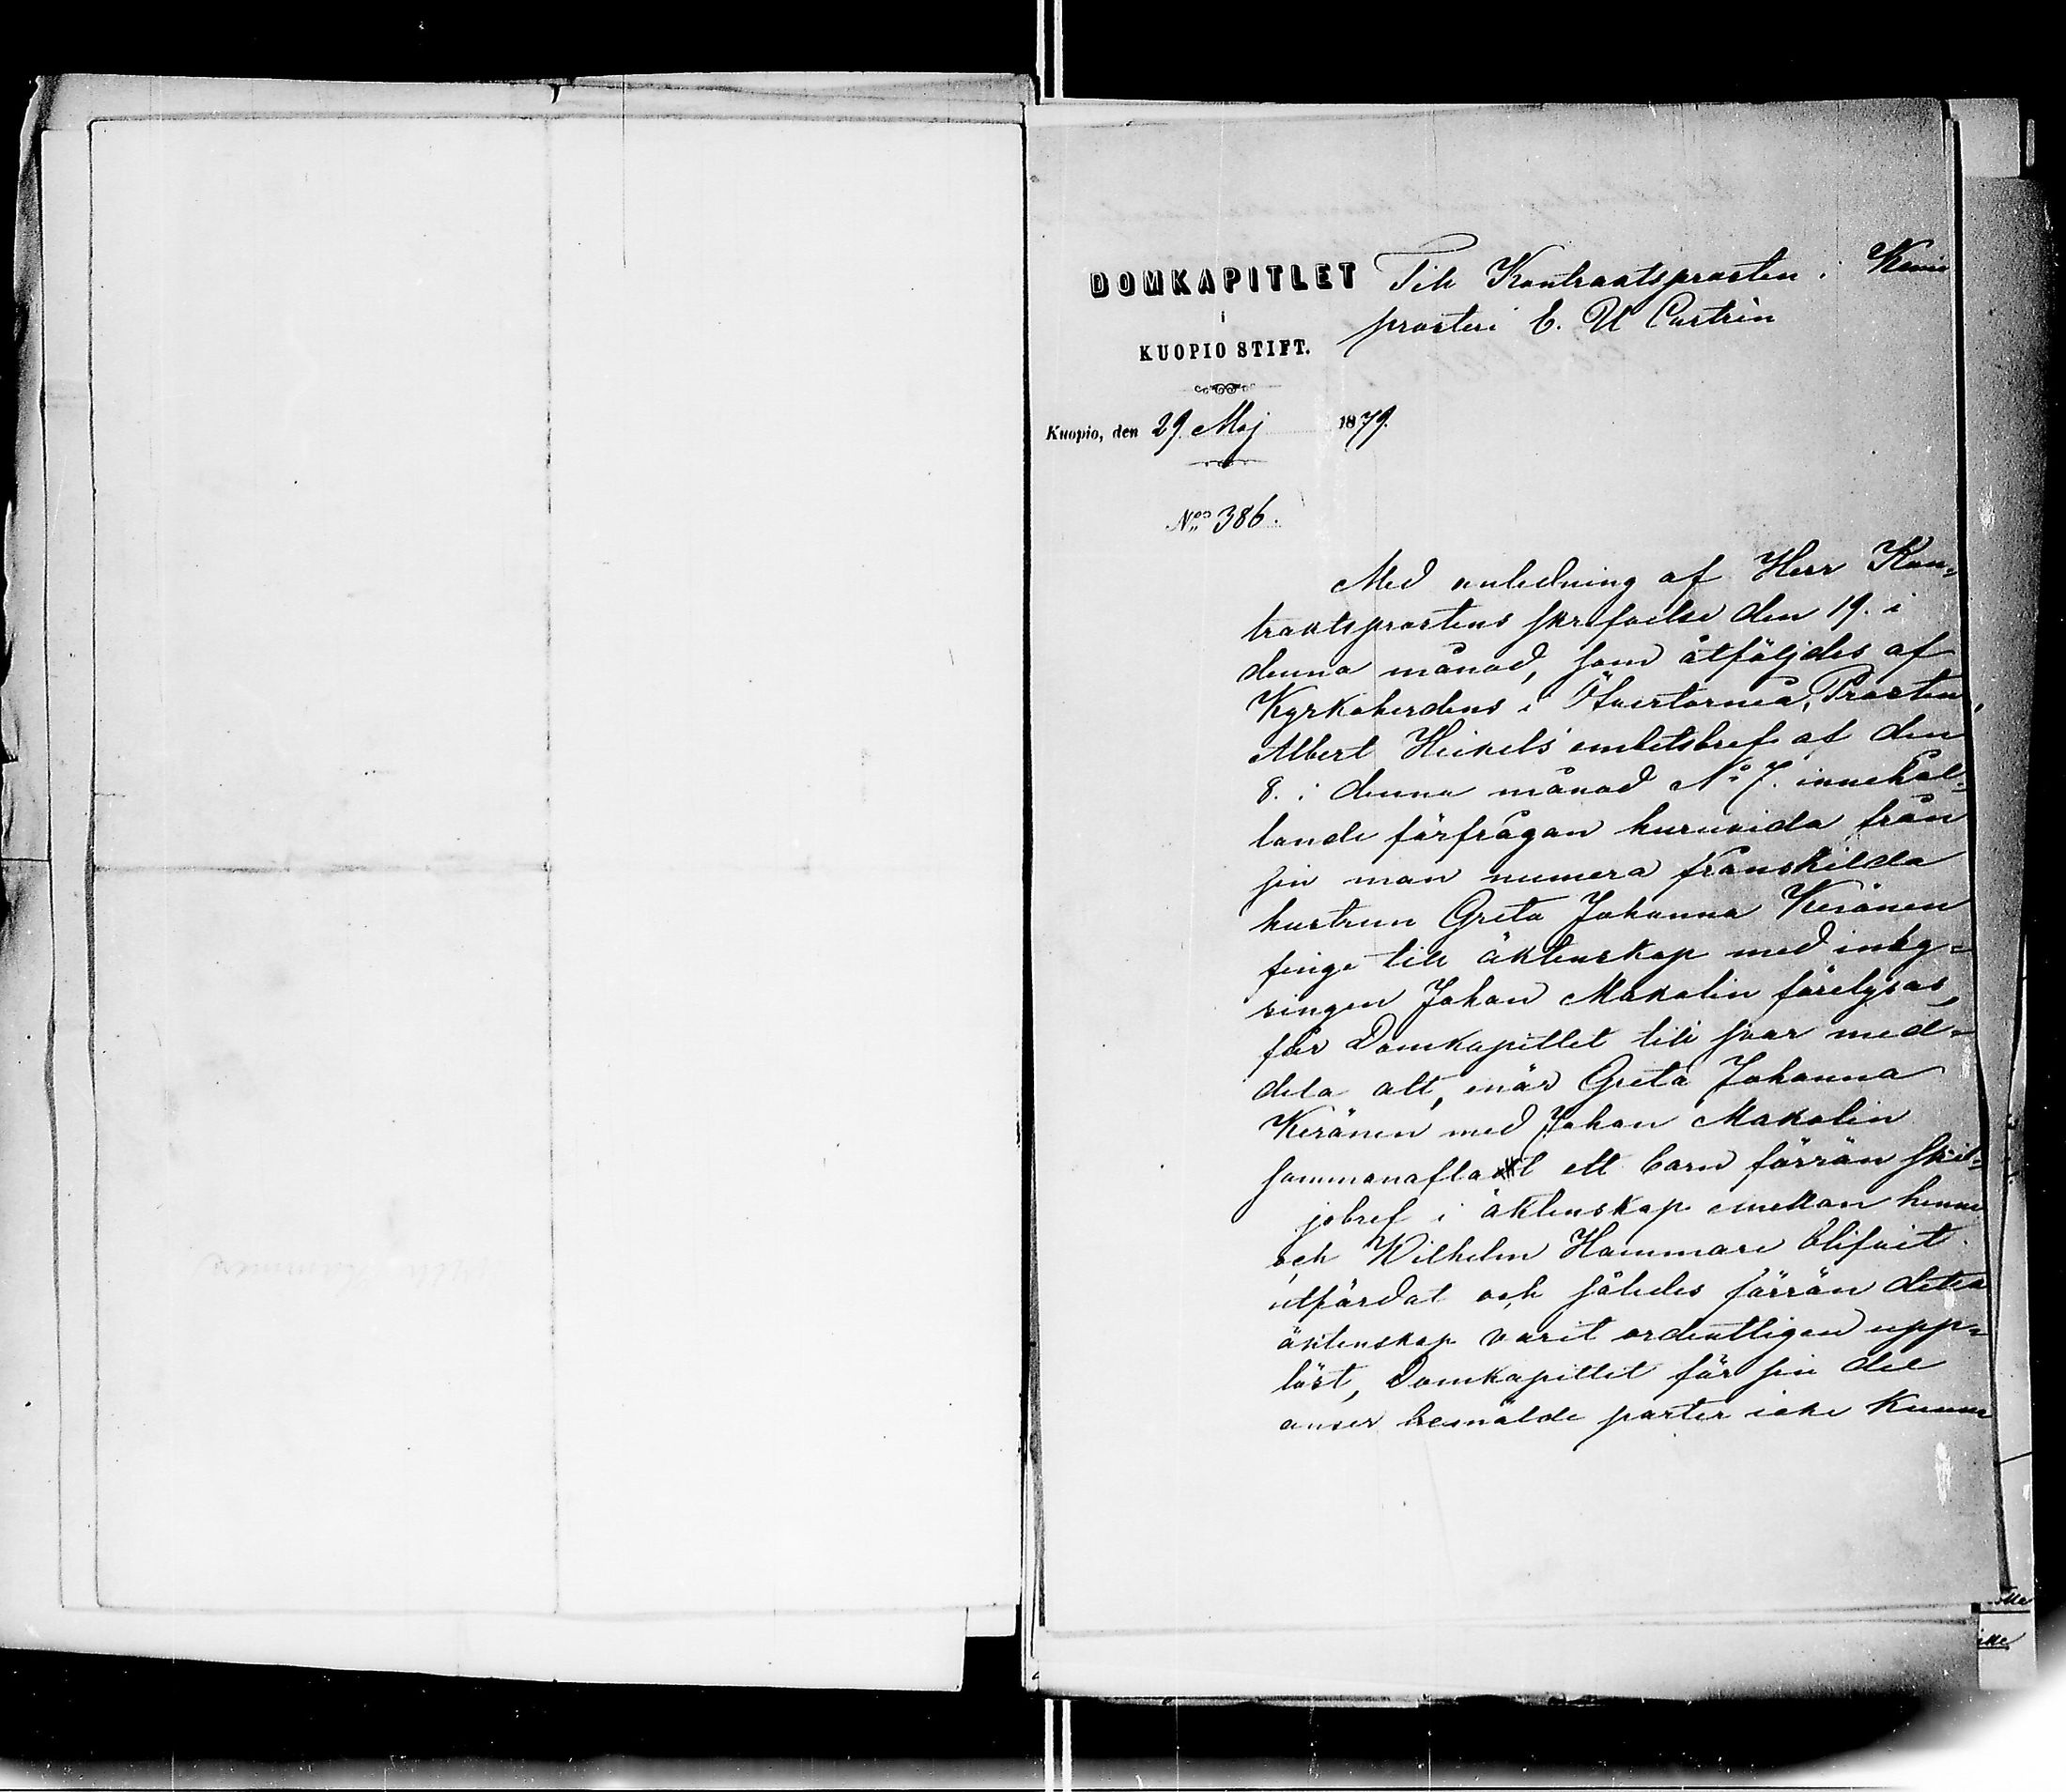 DOMKAPITLET
i
KUOPIO STIFT.
Kuopio, den 29. Maj 1879.
N:o 386.
Till Kontraktsprosten i Kemi
prosteri E. U Castrén
Med anledning af Herr Kon-
traktsprostens skrifvelse den 19. i
denna månad, som åtföljdes af
Kyrkoherdens i Öfvertorneå, Prosten,
Albert Heikels embetsbref af den
8. i denna månad No 7. innehål-
lande förfrågan huruvida från
sin man numera frånskilda
hustrun Greta Johanna Keränen
finge till äktenskap med inhy-
singen Johan Makalin förelysas,
får Domkapitlet till svar med-
dela att, enär Greta Johanna
Keränen med Johan Makalin
sammanaflat ett barn förrän skil-
jobref i äktenskap emellan henne
och Wilhelm Hammare blifvit
utfärdat och således förrän detta
äktenskap varit ordentligen upp-
löst, Domkapitlet för sin del
anser bemälde parter icke kunna